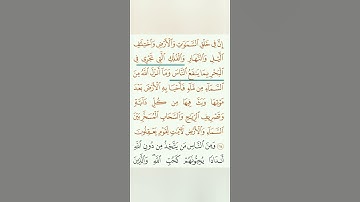 إِنَّ فِي خَلْقِ السَّمَٰوَٰتِ وَالْأَرْضِ وَاخْتِلَٰفِ
الَّيْلِ وَالنَّهَارِ وَالْفُلْكِ الَّتِي تَجْرِي فِي
الْبَحْرِ بِمَا يَنفَعُ النَّاسَ وَمَا أَنزَلَ اللَّهُ مِنَ
السَّمَاءِ مِن مَّاءٍ فَأَحْيَا بِهِ الْأَرْضَ بَعْدَ
مَوْتِهَا وَبَثَّ فِيهَا مِن كُلِّ دَابَّةٍ
وَتَصْرِيفِ الرِّيَٰحِ وَالسَّحَابِ الْمُسَخَّرِ بَيْنَ
السَّمَاءِ وَالْأَرْضِ لَءَايَٰتٍ لِّقَوْمٍ يَعْقِلُونَ
وَمِنَ النَّاسِ مَن يَتَّخِذُ مِن دُونِ اللَّهِ
أَندَادًا يُحِبُّونَهُمْ كَحُبِّ اللَّهِ وَالَّذِينَ